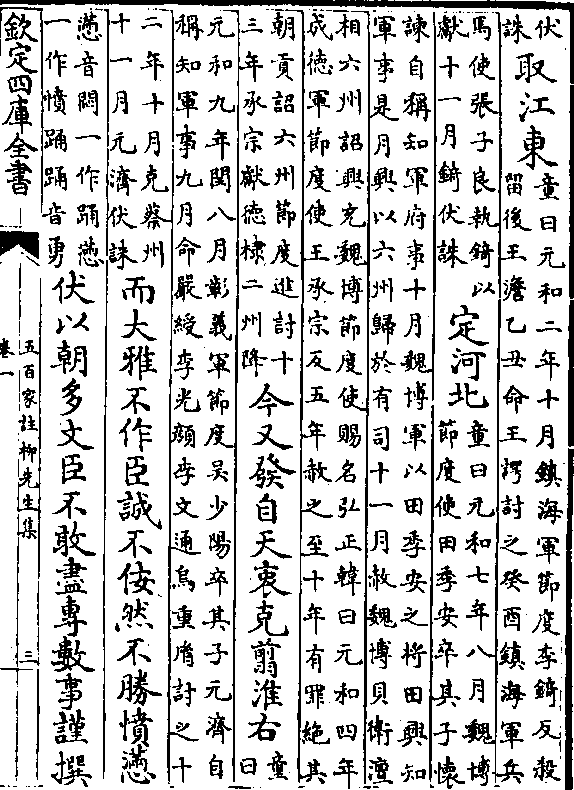 伏
誅
取江東
童曰元和二年十月鎮海軍節度李錡反殺
留後王澹乙丑命王諤討之癸酉鎮海軍兵
馬使張子良執錡以
獻十一月錡伏誅
定河北
童曰元和七年八月魏博
節度使田季安卒其子懷
諫自稱知軍府事十月魏博軍以田季安之將田興知
軍事是月興以六州歸於有司十一月赦魏博貝衛澶
相六州詔興充魏博節度使賜名弘正韓曰元和四年
成德軍節度使王承宗反五年赦之至十年有罪絕其
朝貢詔六州節度進討十
三年承宗獻德棣二州降
今又發自天衷克翦淮右
童
曰
元和九年閏八月彰義軍節度吳少陽卒其子元濟自
稱知軍事九月命嚴綬李光顏李文通烏重胤討之十
二年十月克蔡州
十一月元濟伏誅
而大雅不作臣誠不佞然不勝憤懣
懣音悶一作踊懣
一作憤踊踊音勇
伏以朝多文臣不敢盡專數事謹撰
欽定四庫全書
五百家註柳先生集
卷一
三